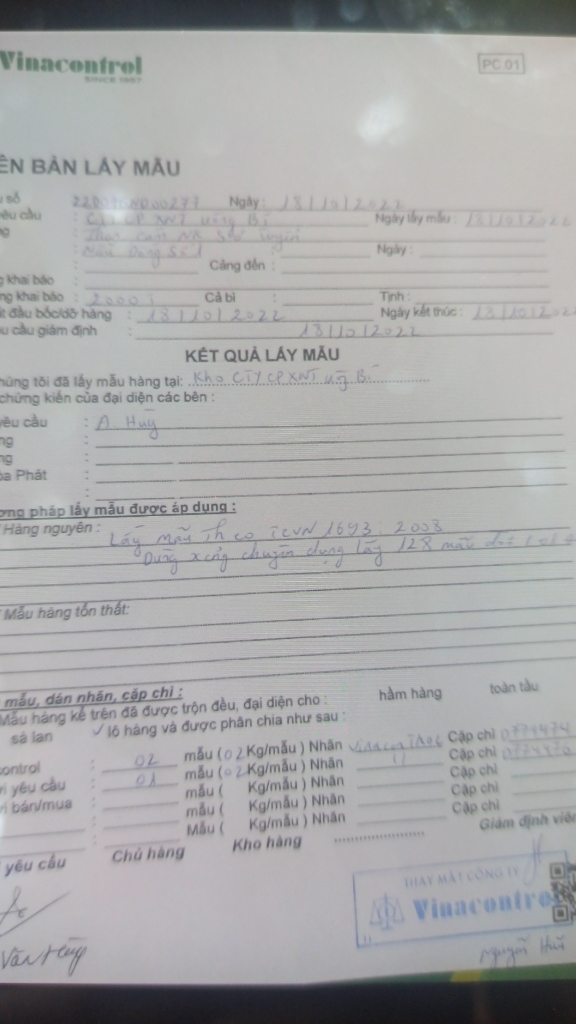 Vinacontrol
SINCE 1957
PC.01
ÊN BẢN LẤY MẪU
số Ngày: 13/10/2022
êu cầu : CTY CP XNT Uông Bí Ngày lấy mẫu : 13/10/2022
ng : Than cám
: Ngày :
: Cảng đến :
g khai báo :
ng khai báo : 2000 Cả bì : Tịnh :
t đầu bốc/dỡ hàng : 13/10/2022 Ngày kết thúc : 13/10/2022
u cầu giám định : 13/10/2022
KẾT QUẢ LẤY MẪU
húng tôi đã lấy mẫu hàng tại: Kho CTY CP XNT
chứng kiến của đại diện các bên :
yêu cầu : A. Hùng
ng :
ng :
òa Phát :
ơng pháp lấy mẫu được áp dụng :
Hàng nguyên :
Lấy mẫu theo TCVN 1693: 2008
Dùng xẻng chuyên dụng lấy 128 mẫu
Mẫu hàng tổn thất:
mẫu, dán nhãn, cặp chì :
Mẫu hàng kể trên đã được trộn đều, đại diện cho : hầm hàng toàn tầu
sà lan ✓ lô hàng và được phân chia như sau :
control : 02 mẫu ( 02 Kg/mẫu ) Nhãn Vinacontrol Cặp chì 0779474
vị yêu cầu : 01 mẫu ( 02 Kg/mẫu ) Nhãn " Cặp chì
vị bán/mua : mẫu ( Kg/mẫu ) Nhãn Cặp chì
: mẫu ( Kg/mẫu ) Nhãn Cặp chì
: Mẫu ( Kg/mẫu ) Nhãn Cặp chì
yêu cầu Chủ hàng Kho hàng Giám định viên
THAY MẶT CÔNG TY
Vinacontrol
Văn Hùng
Nguyễn